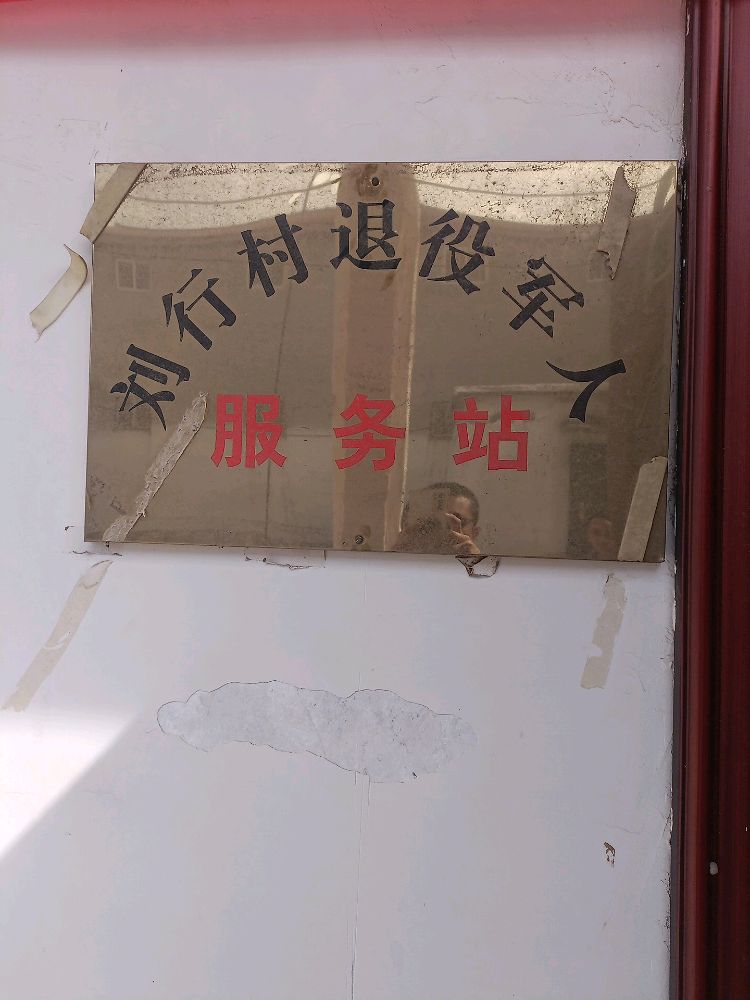 刘行村退役军人
服务站